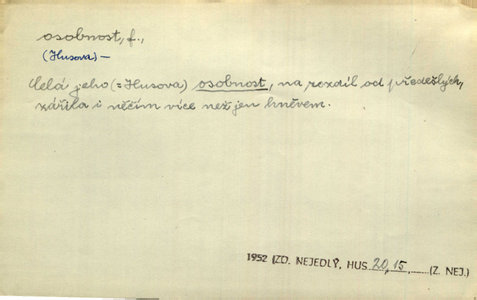 osobnost, f.,
(Husova) —
Celá jeho (= Husova) osobnost, na rozdíl od předešlých,
zářila i něčím více než jen hněvem.
1952 (ZD. NEJEDLÝ, HUS 20, 15, (Z. NEJ.)